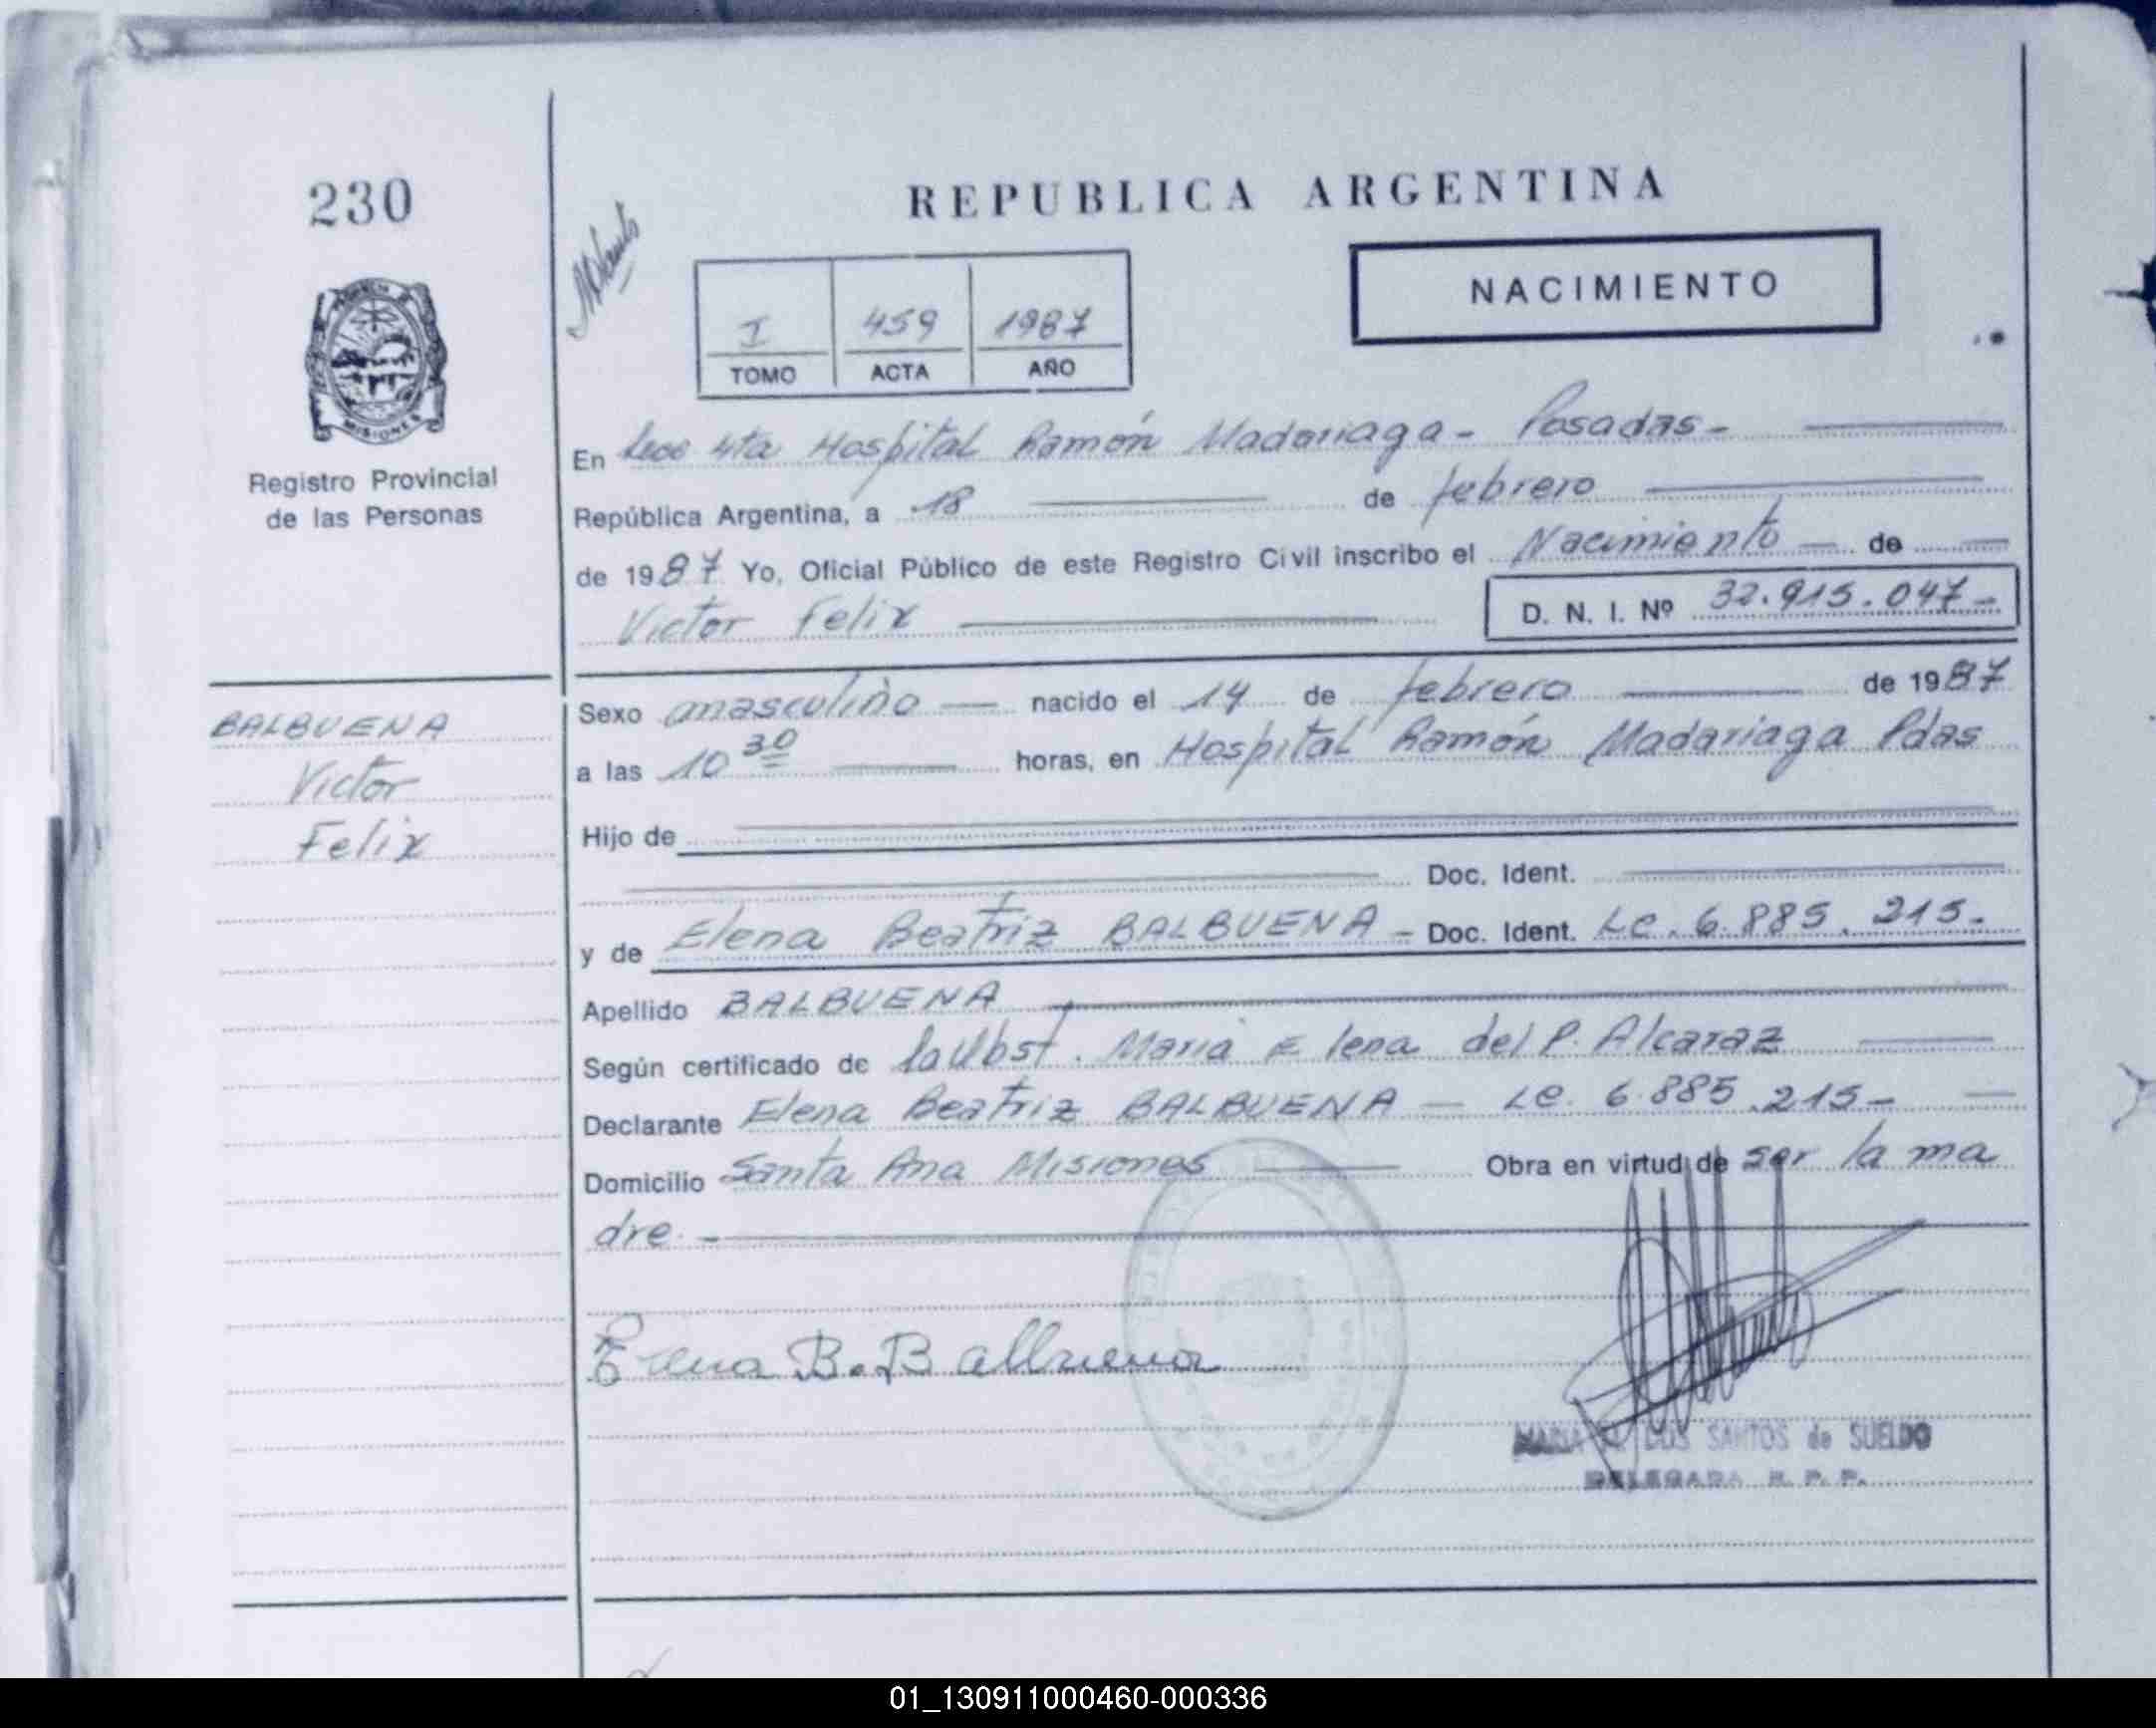 230
REPUBLICA ARGENTINA
NACIMIENTO
I 459 1987
TOMO ACTA AÑO
MISIONES
Registro Provincial
de las Personas
En Secc 4ta Hospital Ramón Madariaga - Posadas -
República Argentina, a 18 de febrero
de 1987 Yo, Oficial Público de este Registro Civil inscribo el Nacimiento de
Victor Felix D. N. I. Nº 32.915.047-
BALBUENA
Victor
Felix
Sexo masculino nacido el 14 de febrero de 1987
a las 10 30 horas, en Hospital Ramón Madariaga Pdas
Hijo de
Doc. Ident.
y de Elena Beatriz BALBUENA - Doc. Ident. LC. 6.885.215-
Apellido BALBUENA
Según certificado de la Obst. Maria Elena del P. Alcaraz
Declarante Elena Beatriz BALBUENA - LC. 6.885.215-
Domicilio Santa Ana Misiones Obra en virtud de ser la ma
dre.-
Elena B. Balbuena
DOS SANTOS de SUELDO
DELEGADA R. P. P.
01_130911000460-000336